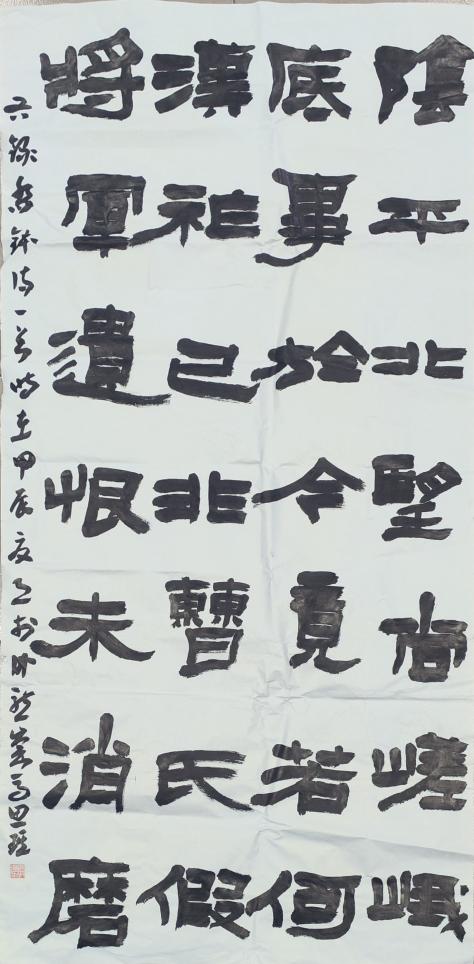 陰平北望尚嵯峨
底事於今竟若何
漢祚已非曹氏假
將軍遺恨未消磨
錄詩一首時在甲辰夏